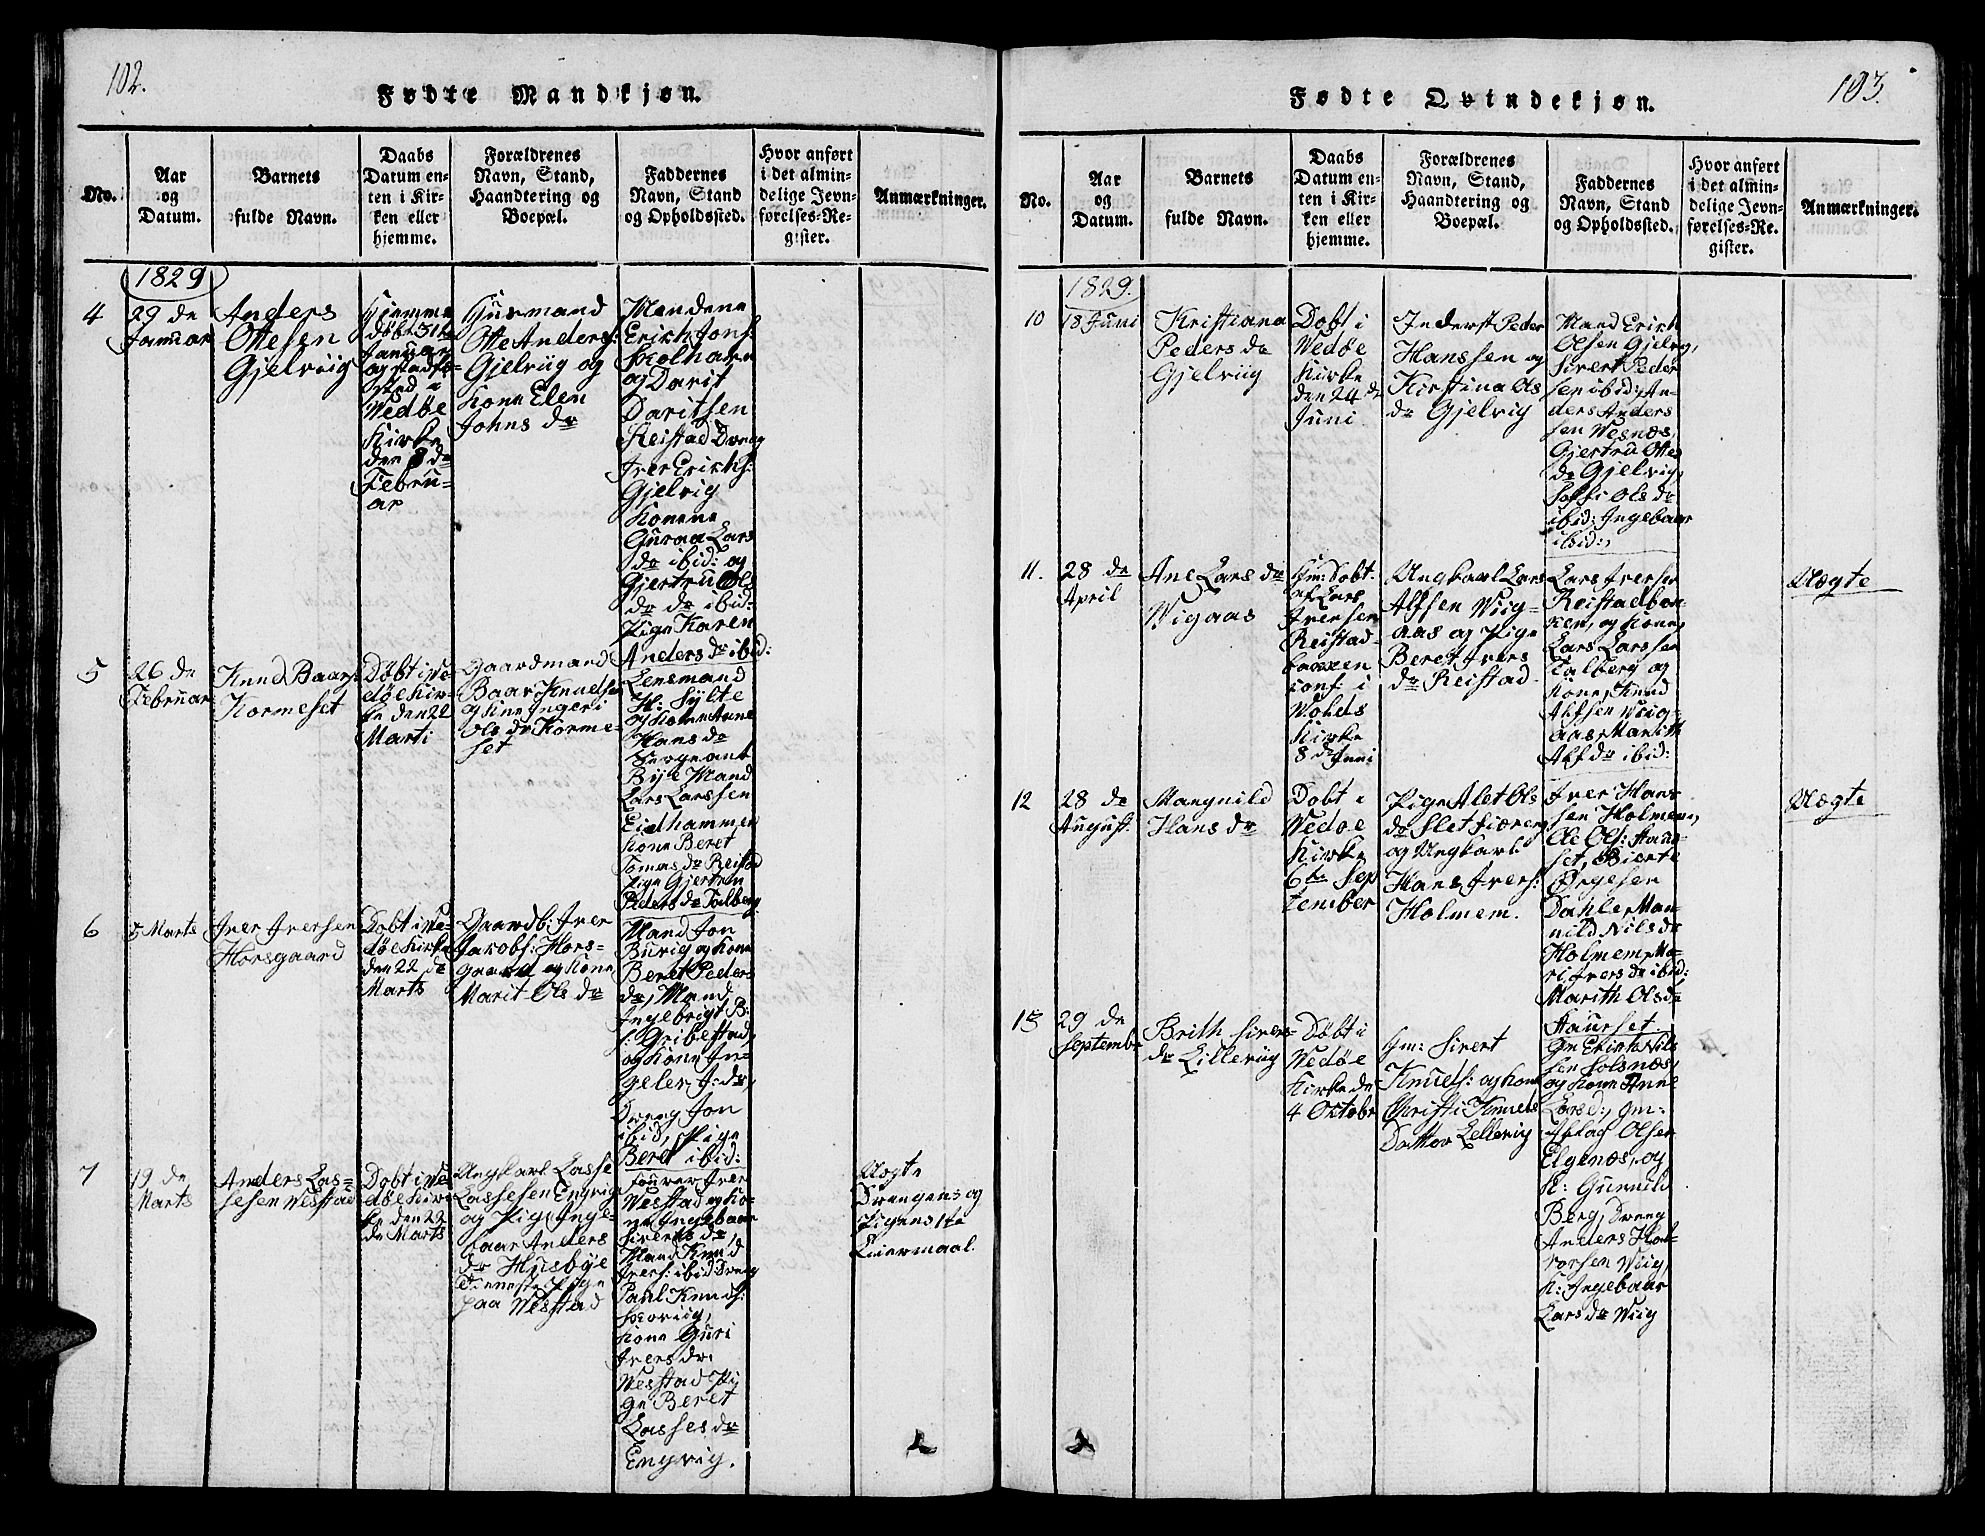 102.
Fødte Mandkjøn.
No.
Aar
og
Datum.
Barnets
fulde Navn.
Daabs
Datum en-
ten i Kir-
ken eller
hjemme.
Forældrenes
Navn, Stand,
Haandtering og
Boepæl.
Faddernes
Navn, Stand
og Opholdssted.
Hvor anført
i det almin-
delige Jevn-
førelses-Re-
gister.
Anmærkninger.
1829
4
29 de
Januar
Anders
Ottesen
Gjelviig
Hjemme
døbt 31te
Januar
og stadfæ-
sted i
Wedøe
Kirke
den 8 de
Febru-
ar
Huusmand
Otte Anders:
Gjelviig og
Kone Elen
Johns dr
Mændene
Erich Jons:
Skolhamn
og Darit
Daritsen
Reistad Dreng
Iver Erichs:
Gjelvig
Konene
Guraa Lars
dr ibid: og
Gjertru Ols
dr dr ibid:
Pige Karen
Anders dr ibid:
5
26 de
Februar
Knud Baars:
Kormeset
Døbt i We
døe Kir-
ke den 22
Marti
Gaardmand
Baar Knudsen
og Kone Ingeri
Ols dr Korme-
set
Lensmand
H: Sylte
og Kone Anne
Hans dr
Sergeant
Bye Mand
Lars Larssen
Eidhammer
Kone Beret
Tomas dr Reistad
Pige Gjertru
Peders dr Talberg
6
5 Marts
Iver Iversen
Horsgaard
Døbt i We-
døe Kirke
den 22 de
Marts
Gaardb: Iver
Jakobs: Hors-
gaard og Kone
Marit Ols dr
Mand Jon
Buvig og Kone
Beret Peders
dr, Mand
Ingebrigt B:
s: Gribestad,
og Kone In-
geler, J: dr,
Dreng Jon
ibid, Pige
Beret ibid:
7
19 de
Marts
Anders Las-
sesen Wesstad
Døbt i We
døe Kir-
ke den 22
de Marts
Ungkarl Lasse
Lassesen Engvig
og Pige Inge-
baar Anders
dr Husbye
Tienneste Pige
paa Wesstad
Iver
Wesstad og Ko-
ne Ingebaar
Siverts dr
Mand Knud
Ivers: ibid Dreng
Paul Knuds:
Skoviig,
Kone Guri
Ivers dr
Wesstad Pi-
ge Beret
Lasses dr
Engvig.
Uægte
Drengens og
Pigens 1te
Leiermaal.
103.
Fødte Qvindekjøn.
No.
Aar
og
Datum.
Barnets
fulde Navn.
Daabs
Datum en-
ten i Kir-
ken eller
hjemme.
Forældrenes
Navn, Stand,
Haandtering og
Boepæl.
Faddernes
Navn, Stand
og Opholdssted.
Hvor anført
i det almin-
delige Jevn-
førelses-Re-
gister.
Anmærkninger.
1829.
10
18 Juni
Kristiana
Peders dr
Gjelviig
Døbt i
Wedøe
Kirke
den 24 de
Juni
Inderst Peder
Hanssen og
Kirstina Ols
dr Gjelvig
Mand Erich
Olsen Gjelvig,
Sivert Peder
sen ibid: An-
ders Anders
sen Wesnæs,
Gjertru Otte
dr Gjelvig,
Soffi Ols dr
ibid: Ingebaar
ibid:,
11.
28 de
April
Ane Lars dr
Wigaas
Hm: Døbt.
af Lars
Iversen
Reistad-
bakken
conf: i
Wolds
Kirke
8 de Juni
Ungkarl Lars
Alfsen Wiig-
aas og Pige
Beret Ivers
dr Reistad
Lars Iversen
Reistadbak-
ken, og Kone,
Lars Larssen
Talberg og
Kone, Knud
Alfsen Wiig-
aas, Marith
Alf dr ibid:
Uægte
12
28 de
August
Mangnild
Hans dr
Døbt i
Wedøe
Kirke
6te Sep
tember
Pige Alet Ols
dr Sletfiæren
og Ungkarl
Hans Ivers:
Holmem.
Iver Hans
sen Holmem,
Ole Ols: Haur-
set, Bierte
Ørgesen
Dahle, Man-
nild Nils dr
Holmem, Ma-
ri Ivers dr ibid:
Marith Ols dr
Haurset.
Uægte
13
29 de
September
Brith Sivers-
dr Lillevug
Døbt i
Wedøe
Kirke de
4 Oktobr
Gm: Sivert
Knuds: og Kone
Christi Knuds
Dattor Lellevig
Gm Erich Nils
sen Solsnæs,
og Kone Anne
Larsd:, Gm:
Aslag Olsen
Elgenæs, og
K: Gunnild
Berg, Dreng
Anders Hal-
vorsen Wiig,
K: Ingebaar
Lars dr Wiig